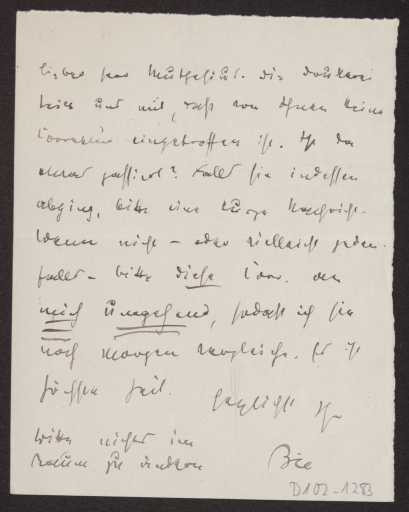 lieber Herr Muthesius. Die Druckerei
teilt uns mit, dass von Ihnen keine
Correktur eingetroffen ist. Ist da
etwas passirt? Falls sie indessen
abging, bitte eine kurze Nachricht.
Wenn nicht – oder vielleicht jeden-
falls – bitte diese Corr. an
mich umgehend, sodass ich sie
noch morgen vergleiche. Es ist
höchste Zeit.
herzlichst Ihr
Bie
bitte nichts im
Raum zu ändern
D102-1283